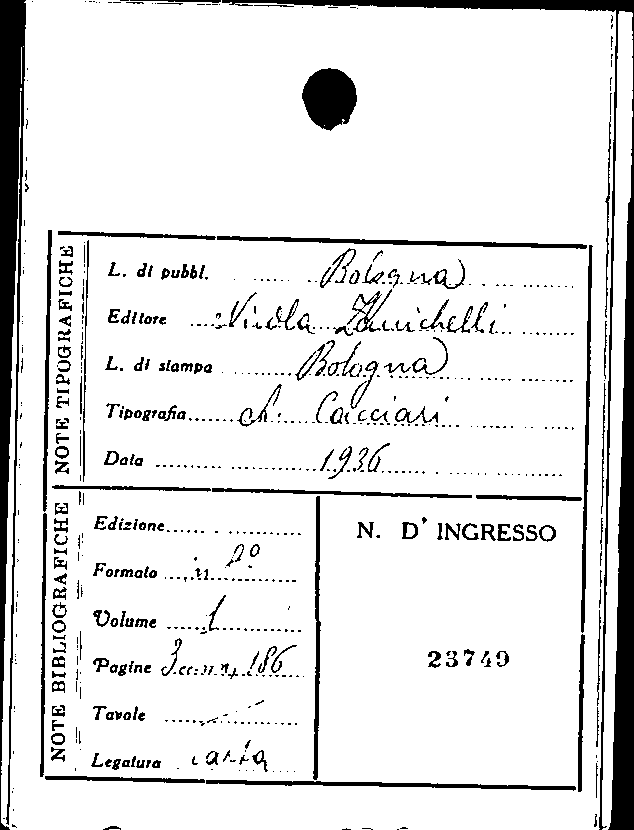 NOTE TIPOGRAFICHE
L. di pubbl. Bologna
Editore Nicola Zanichelli
L. di stampa Bologna
Tipografia A. Cacciari
Data 1936
NOTE BIBLIOGRAFICHE
Edizione
Formato in 8º
Volume 1
Pagine 186
Tavole
Legatura carta
N. D' INGRESSO
23749